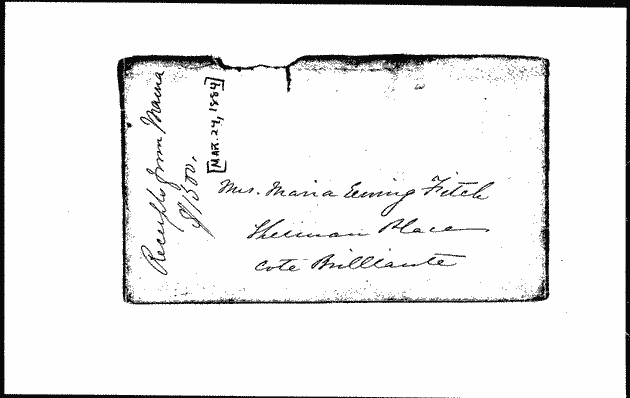 Receipts from Mama
$1500.
[MAR. 24, 1884]
Mrs. Maria Ewing Fitch
Sherman Place
Cote Brilliante